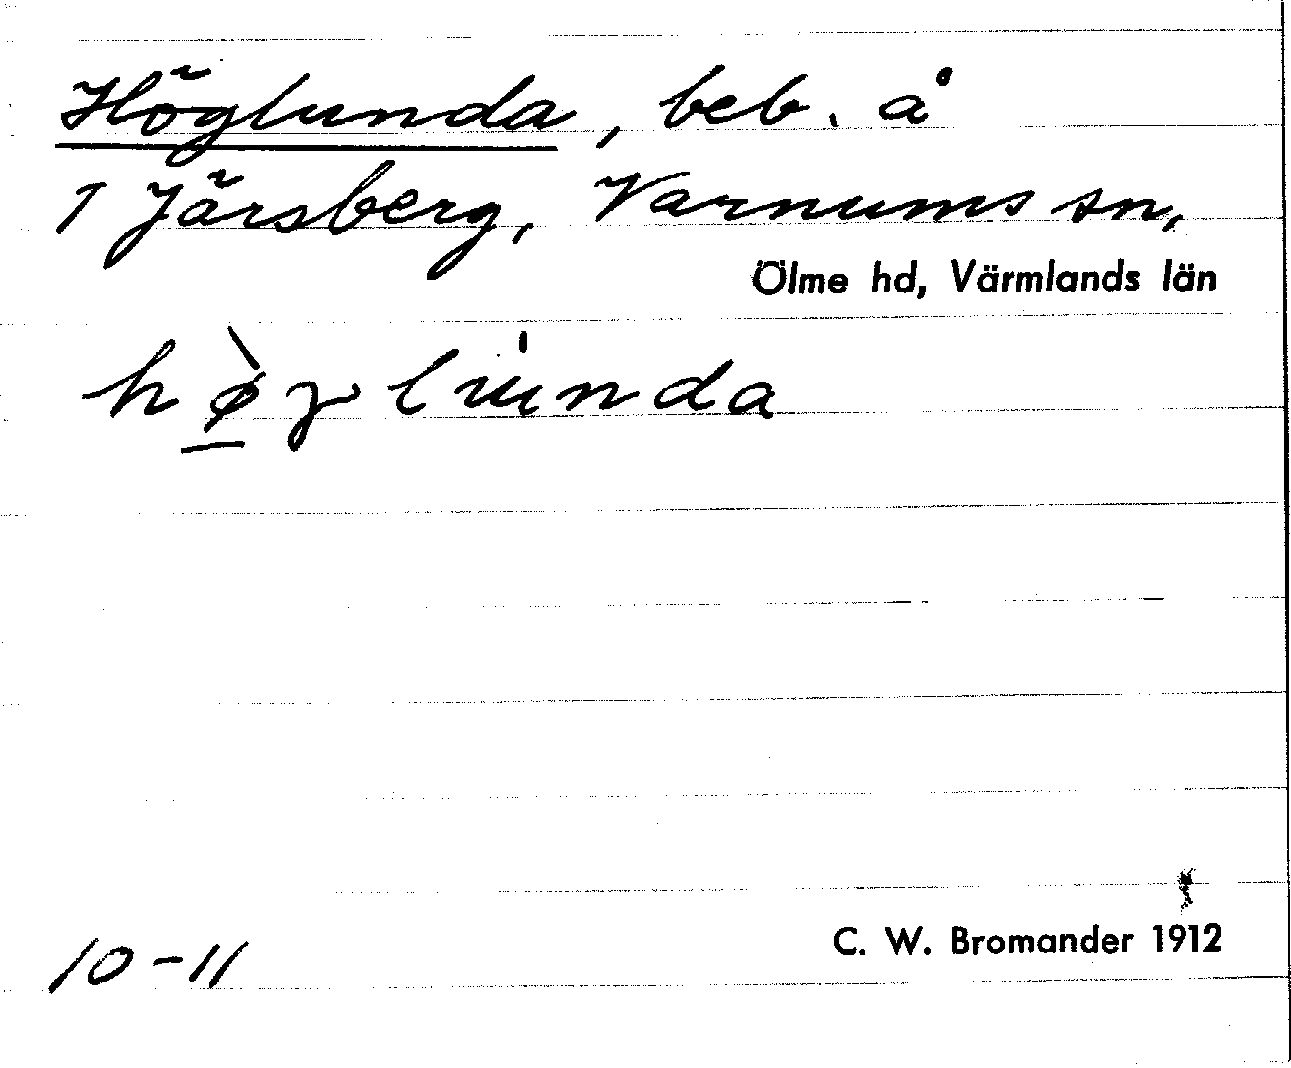 Höglunda, beb. å
1 Järsberg, Varnums sn,
Ölme hd, Värmlands län
10-11
C. W. Bromander 1912